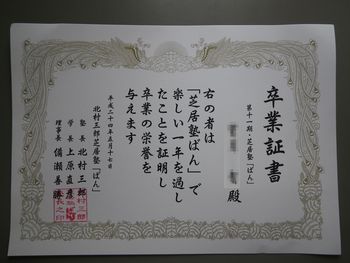 卒業証書
第十一期・芝居塾「ばん」
殿
右の者は
「芝居塾ばん」で
楽しい一年を過し
たことを証明し
卒業の栄誉を
与えます
平成二十四年五月十七日
北村三郎芝居塾「ばん」
塾長 北村三郎
学長 上原直彦
理事長 備瀬善勝